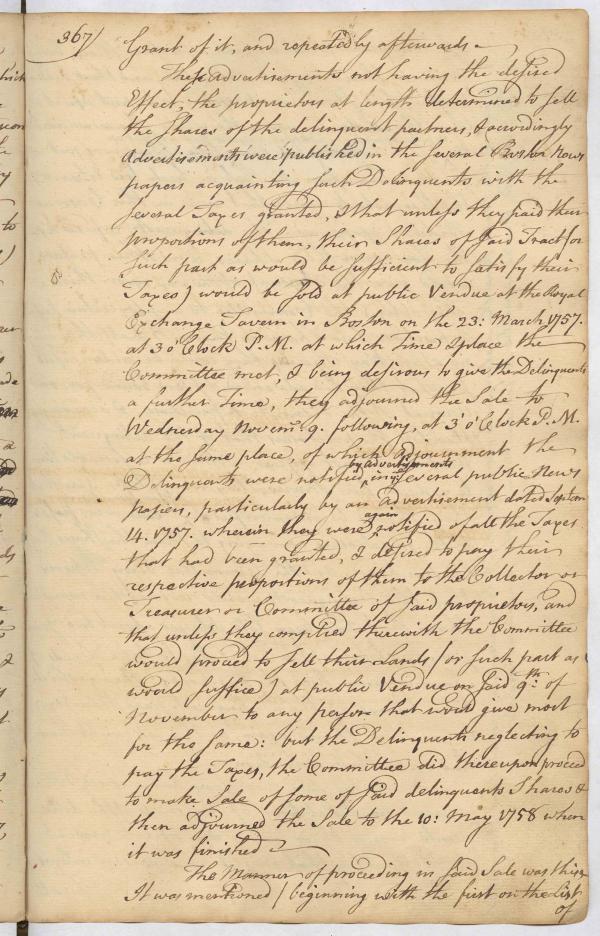 367/
Grant of it, and repeatedly afterwards
These advertisements not having the desired
Effect, the proprietors at length determined to sell
the Shares of the delinquent partners, & accordingly
Advertisements were published in the several Boston News
papers acquainting such Delinquents with the
several Taxes granted, & that unless they paid their
proportions of them, their Shares of said Tract (or
such part as would be sufficient to satisfy their
Taxes) would be sold at public Vendue at the Royal
Exchange Tavern in Boston on the 23: March 1757.
at 3 o'Clock P.M. at which Time & place the
Committee met, & being desirous to give the Delinquents
a further Time, they adjourned the Sale to
Wednesday Novemr. 9. following, at 3 o'Clock P.M.
at the same place, of which adjournment the
by advertisements
Delinquents were notified, in several public News
papers, particularly by an advertisement dated Septem
again
14. 1757. wherein they were notified of all the Taxes
that had been granted, & desired to pay their
respective proportions of them to the Collector or
Treasurer or Committee of said proprietors, and
that unless they complied therewith the Committee
would proceed to sell their Lands (or such part as
would suffice) at public Vendue on said 9th. of
November to any person that would give most
for the same: but the Delinquents neglecting to
pay the Taxes, the Committee did thereupon proceed
to make Sale of some of said delinquents Shares &
then adjourned the Sale to the 10: May 1758 when
it was finished
The Manner of proceeding in said Sale was this
It was mentioned (beginning with the first on the List
of